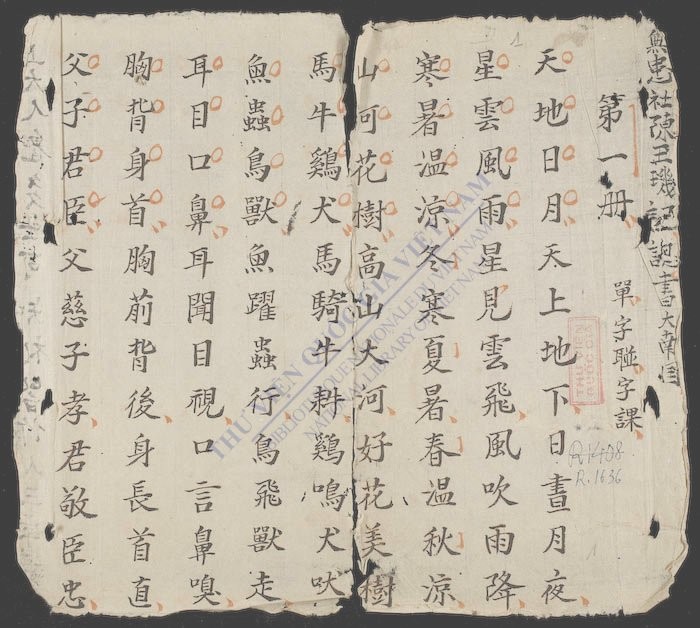 社陳玉璣記認書大南
第一册 單字聮字課
天地日月天上地下日晝月夜
星雲風雨星見雲飛風吹雨降
寒暑温涼冬寒夏暑春温秋涼
山河花樹高山大河好花美樹
馬牛鷄犬馬騎牛耕鷄鳴犬吠
魚蟲鳥獸魚躍蟲行鳥飛獸走
耳目口鼻耳聞目視口言鼻嗅
胸背身首胸前背後身長首直
父子君臣父慈子孝君敬臣忠
1
R.1408
R.1636
THƯ VIỆN QUỐC GIA VIỆT NAM
BIBLIOTHEQUE NATIONALE DU VIETNAM
NATIONAL LIBRARY OF VIETNAM